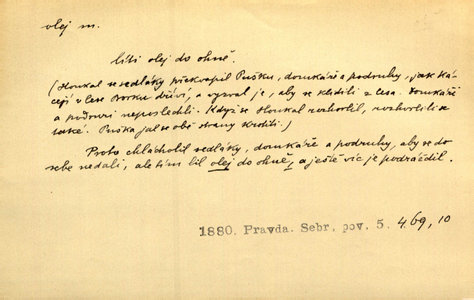 olej m.
líti olej do ohně.
(Houkal se sedláky překvapil Pušku, domkáře a podruhy, jak ká-
cejí v lese Borku dříví, a vyzval je, aby se klidili z lesa. Domkáři
a podruzi neposlechli. Když se Houkal rozhorlil, rozhorlili se
také. Puška jal se obě strany krotiti.)
Proto chlácholil sedláky, domkáře a podruhy, aby se do
sebe nedali, ale tím lil olej do ohně, a ještě víc je podráždil.
1880. Pravda. Sebr. pov. 5. 469, 10